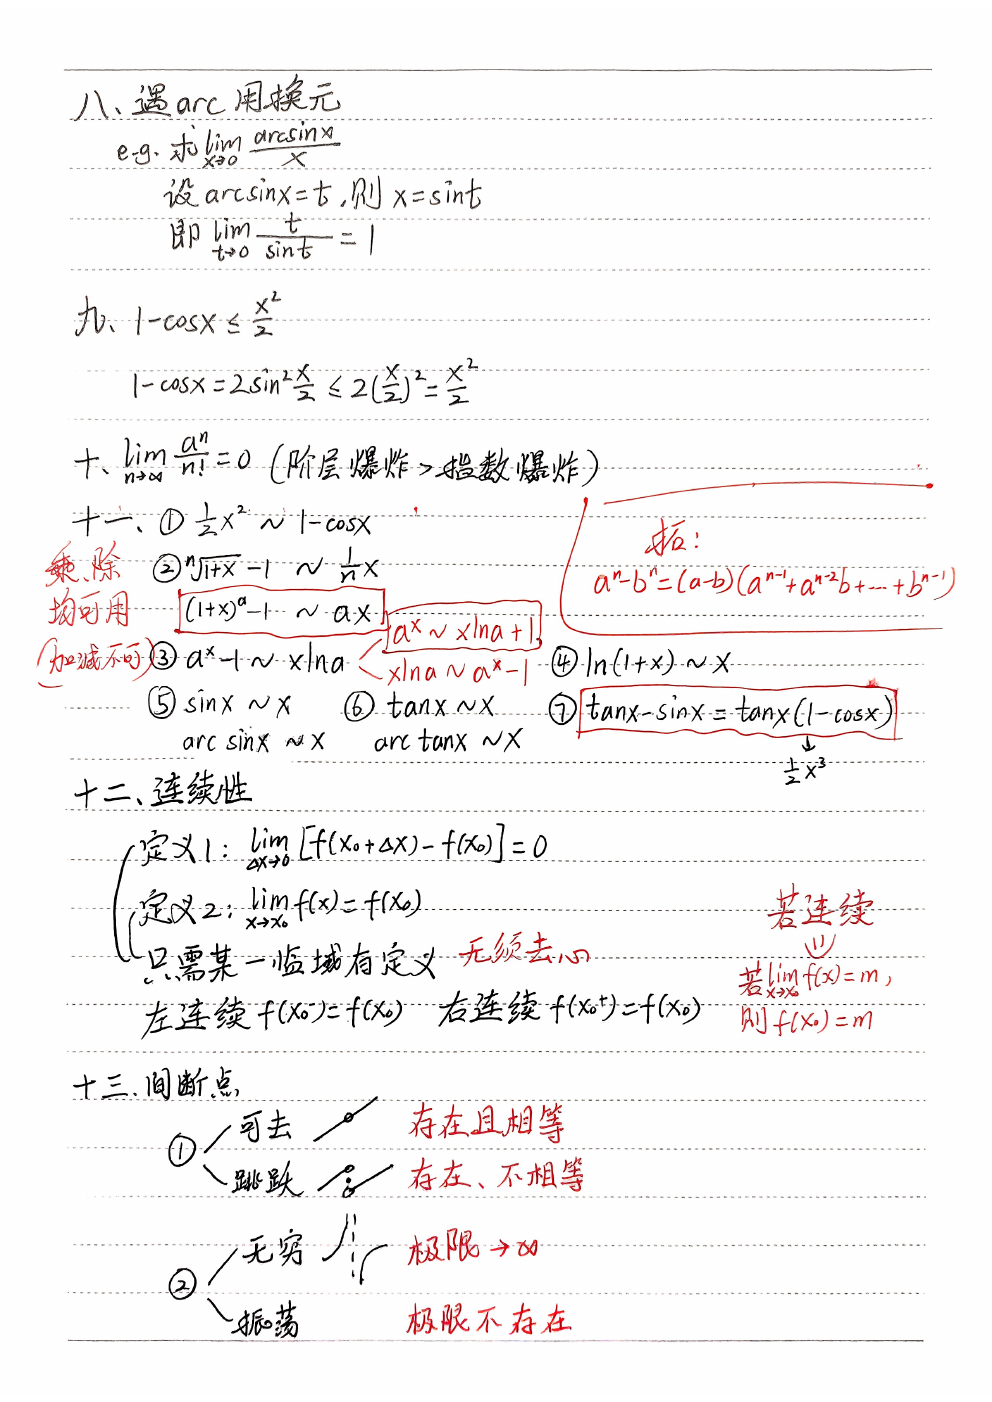 八、遇arc用换元
e.g. 求 lim x→0 arcsinx/x
设arcsinx=t,则x=sint
即 lim t→0 t/sint = 1
九、1-cosx ≤ x²/2
1-cosx = 2sin²x/2 ≤ 2(x/2)² = x²/2
十、lim n→∞ aⁿ/n! = 0 (阶层爆炸>指数爆炸)
十一、① ½x² ~ 1-cosx
乘、除
均可用
(加减不可)
② ⁿ√1+x -1 ~ 1/n x
(1+x)ᵃ-1 ~ ax
拓:
aⁿ-bⁿ=(a-b)(aⁿ⁻¹+aⁿ⁻²b+…+bⁿ⁻¹)
③ aˣ-1 ~ xlna
aˣ ~ xlna+1
xlna ~ aˣ-1
④ ln(1+x) ~ x
⑤ sinx ~ x ⑥ tanx ~ x ⑦ tanx-sinx = tanx(1-cosx)
arc sinx ~ x arc tanx ~ x
↓
½x³
十二、连续性
定义1: lim Δx→0 [f(x₀+Δx)-f(x₀)]=0
定义2: lim x→x₀ f(x)=f(x₀)
只需某一临域有定义 无须去心
左连续 f(x₀⁻)=f(x₀) 右连续 f(x₀⁺)=f(x₀)
若连续
⇓
若 lim x→x₀ f(x)=m,
则 f(x₀)=m
十三.间断点
① 可去 存在且相等
跳跃 存在、不相等
② 无穷 极限→∞
振荡 极限不存在